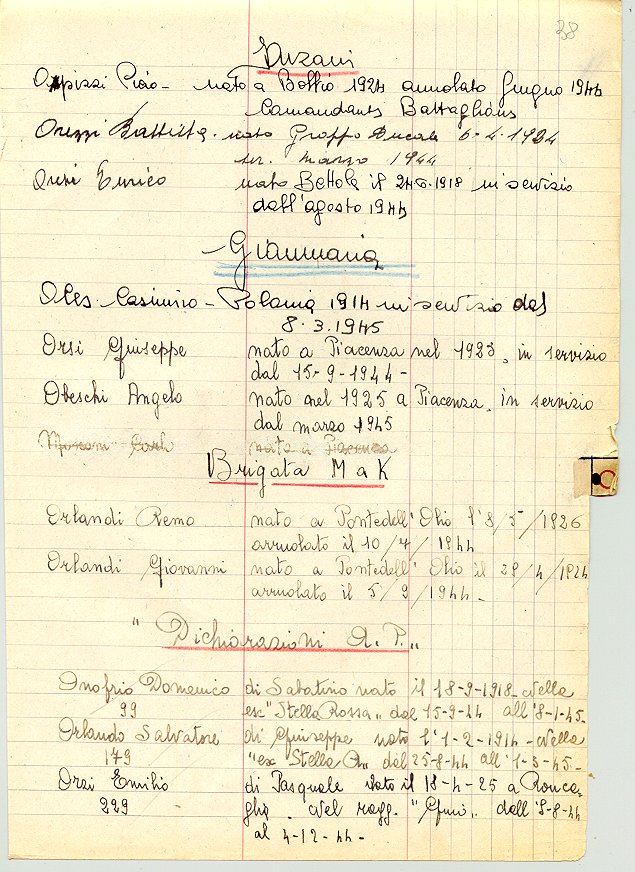 38
Suzani
Opizzi Piào - nato a Bobbio 1924 arruolato Giugno 1944
Comandante Battaglione
Orezzi Battista - nato Groppo Ducale 6-4-1924
ser. marzo 1944
Orsi Enrico nato Bettola il 24-6-1918 in servizio
dall'agosto 1944
Giannaria
Oles Casimiro - Polonia 1914 in servizio dal
8.3.1945
Orsi Giuseppe nato a Piacenza nel 1923, in servizio
dal 15-9-1944 -
Obeschi Angelo nato nel 1925 a Piacenza, in servizio
dal marzo 1945
nato a Piacenza
Brigata Mak
Orlandi Remo nato a Pontedell'Olio l'8/5/1926
arruolato il 10/7/1944
Orlandi Giovanni nato a Pontedell'Olio il 29/4/1924
arruolato il 5/9/1944 -
"Dichiarazioni A.P."
Onofrio Domenico di Sabatino nato il 18-9-1918 - Nella
99 ex "Stella Rossa" dal 15-9-44 all'8-1-45 -
Orlando Salvatore di Giuseppe nato l'1-2-1914 - Nella
179 "ex Stella R" dal 25-8-44 all'1-3-45 -
Orsi Emilio di Pasquale nato il 18-4-25 a Ronca-
229 glia. Nel ragg. dall'8-8-44
al 4-12-44 -
C